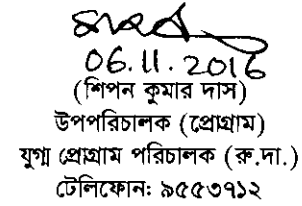 06.11.2016
(শিপন কুমার দাস)
উপপরিচালক (প্রোগ্রাম)
যুগ্ম প্রোগ্রাম পরিচালক (রু.দা.)
টেলিফোনঃ ৯৫৫৩৭১২